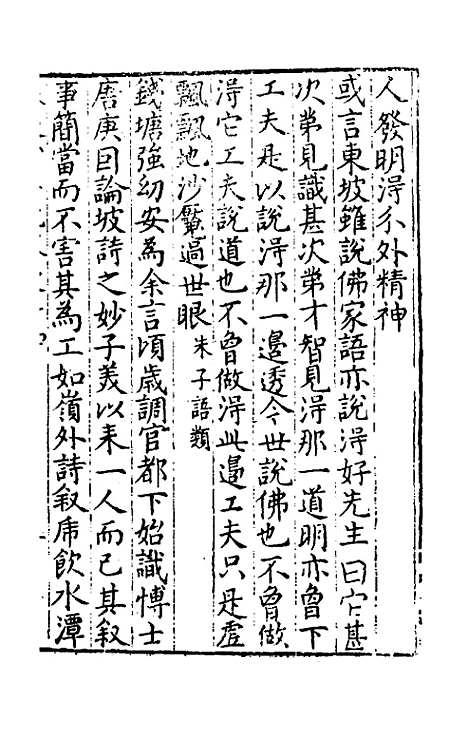 人發明得分外精神
或言東坡雖說佛家語亦說得好先生曰它甚
次第見識甚次第才智見得那一道明亦曾下
工夫是以說得那一邊透今世說佛也不曾做
得它工夫說道也不曾做得此邊工夫只是虛
飄飄地沙魘過世眼朱子語類
錢塘強幼安為余言頃歲調官都下始識博士
唐庚因論坡詩之妙子美以来一人而已其叙
事簡當而不害其為工如嶺外詩叙虎飲水潭